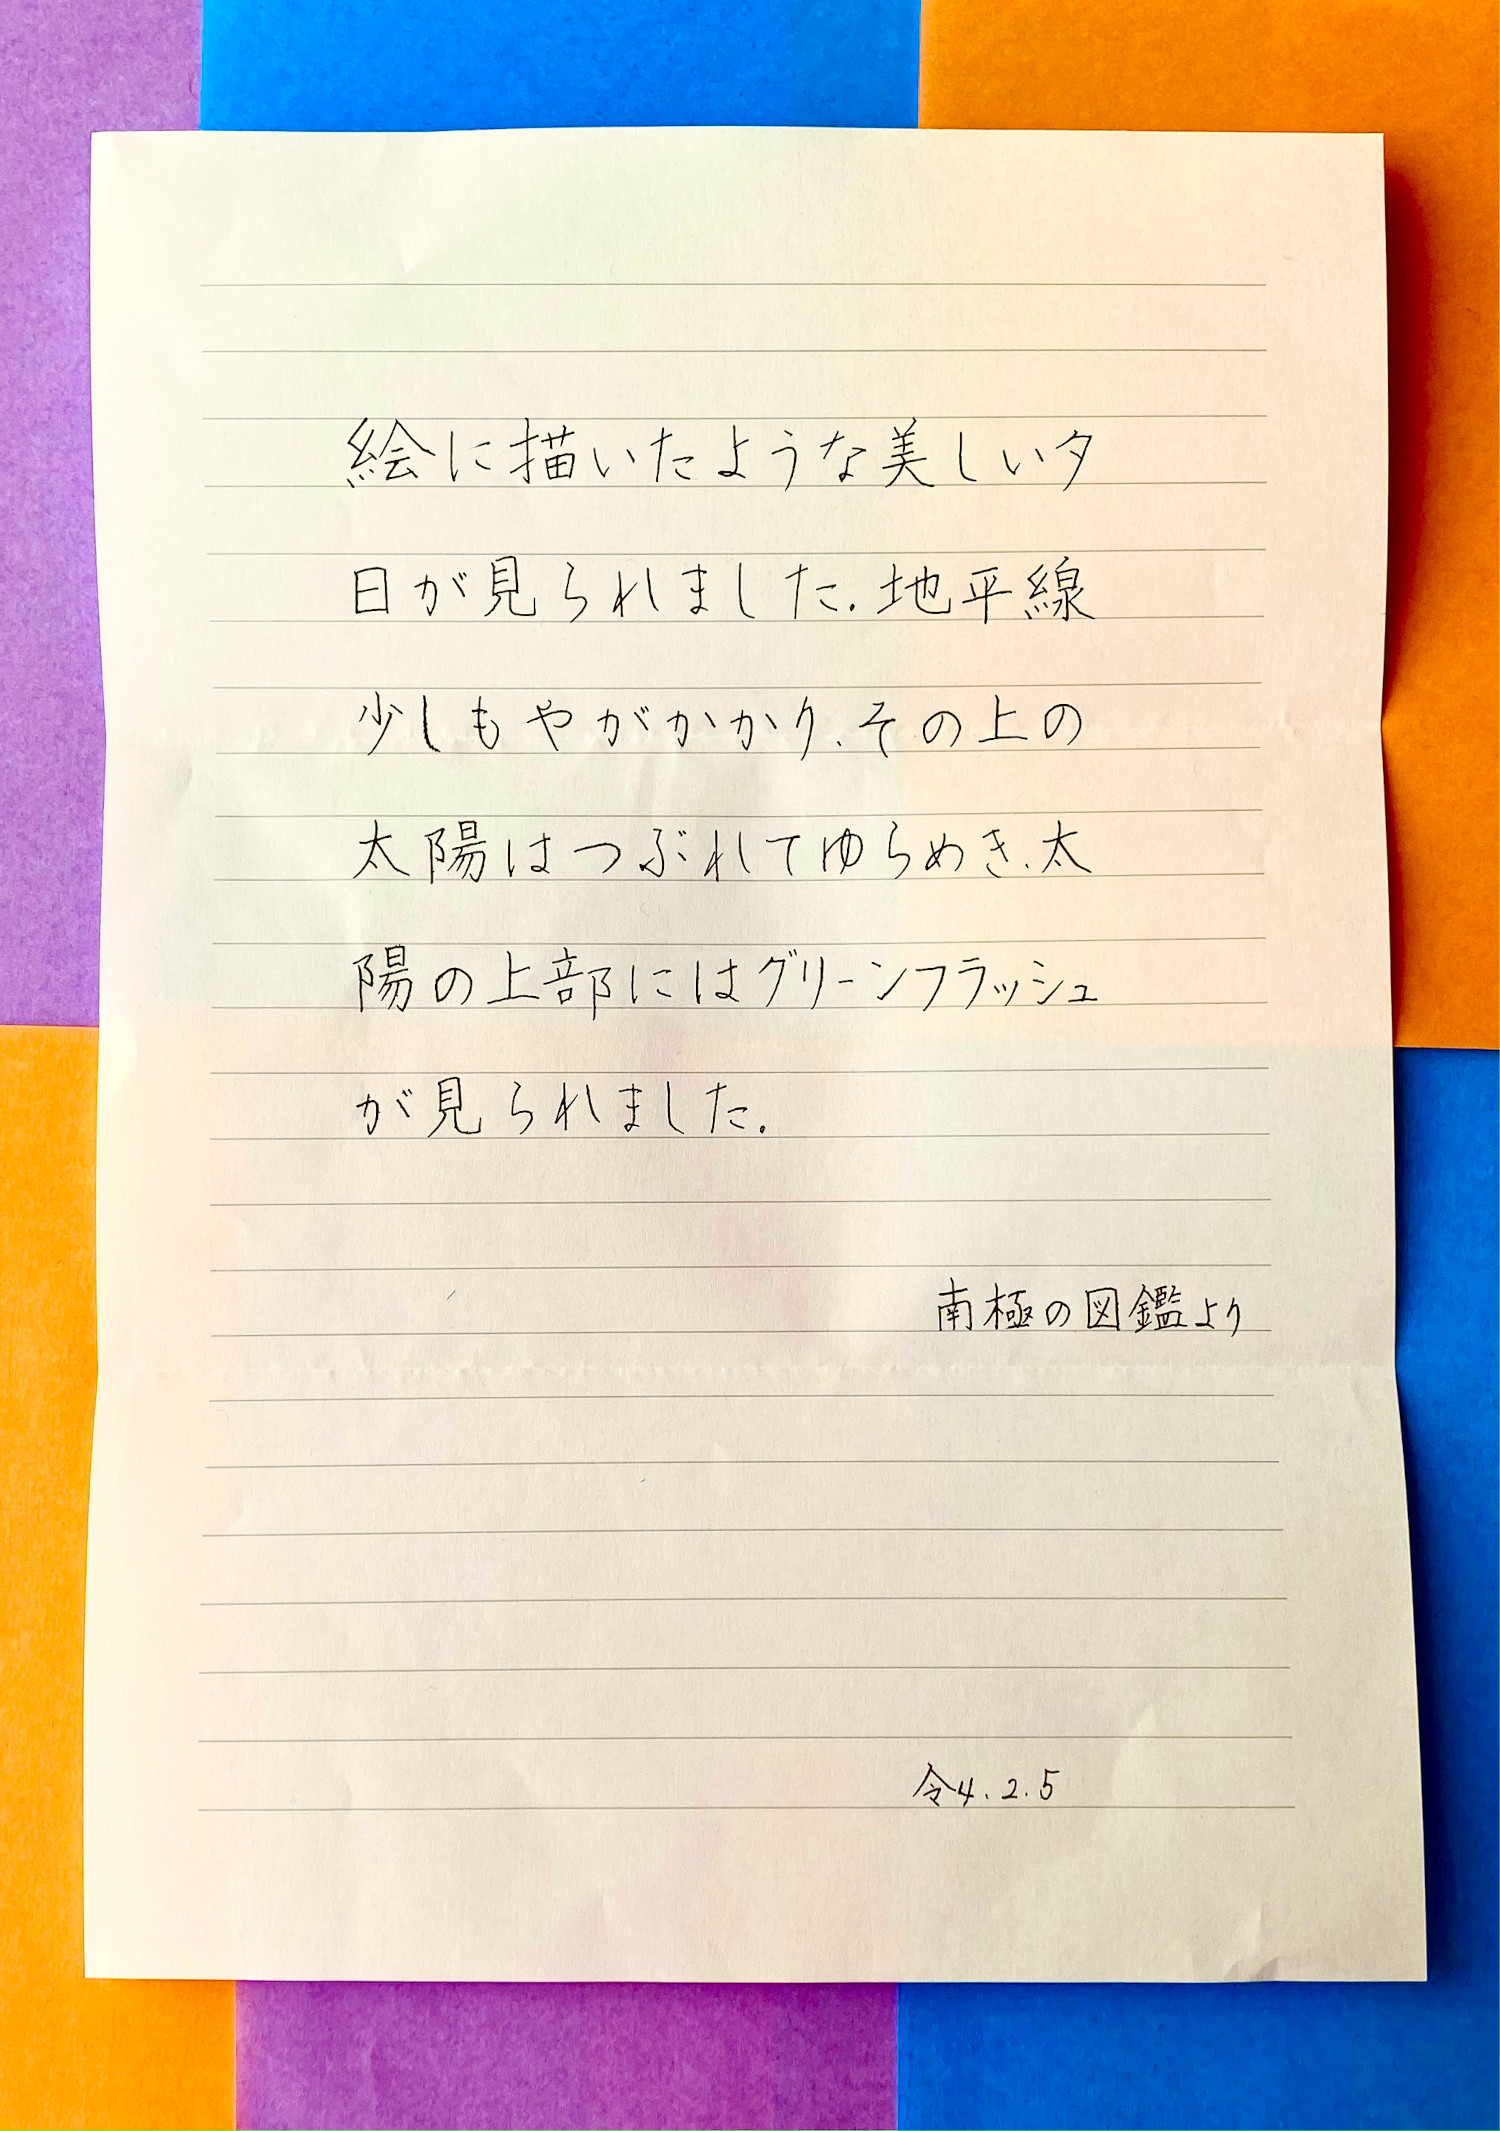 絵に描いたような美しい夕
日が見られました.地平線
少しもやがかかり、その上の
太陽はつぶれてゆらめき、太
陽の上部にはグリーンフラッシュ
が見られました.
南極の図鑑より
令4.2.5